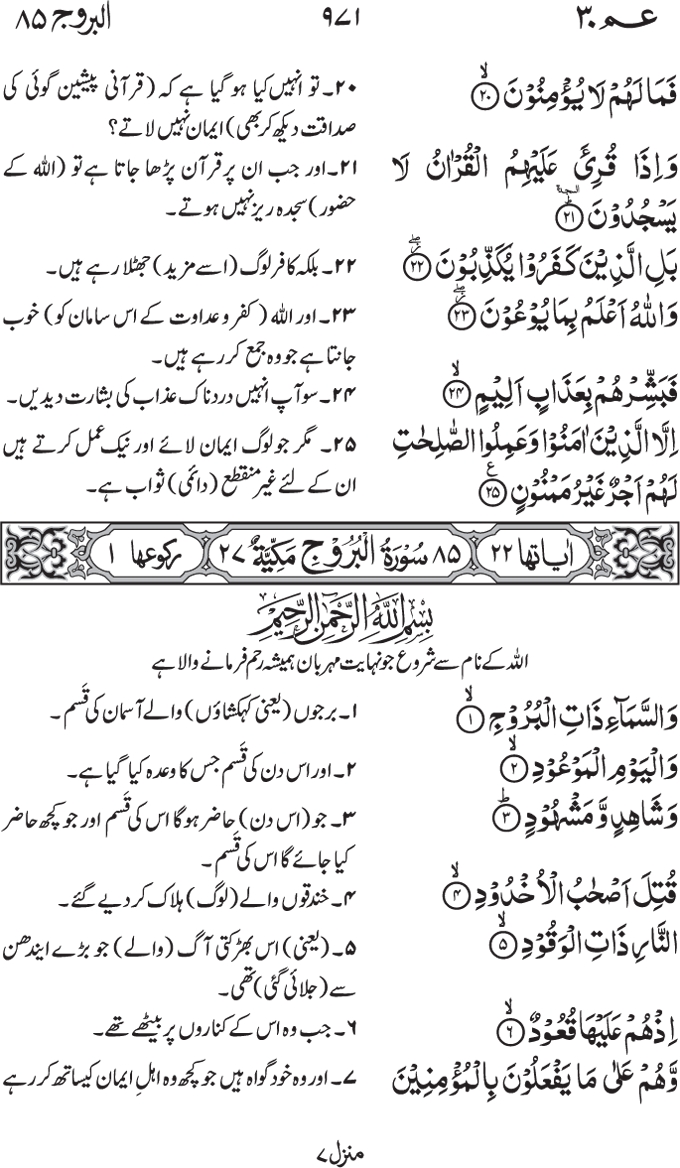 عـم ٣٠ ٩٧١ البروج ٨٥
فَمَا لَهُمْ لَا يُؤْمِنُوْنَ ۙ﴿۲۰﴾
۲۰۔ تو انہیں کیا ہو گیا ہے کہ (قرآنی پیشین گوئی کی
صداقت دیکھ کر بھی) ایمان نہیں لاتے؟
وَاِذَا قُرِئَ عَلَيْهِمُ الْقُرْاٰنُ لَا
يَسْجُدُوْنَ ؕ﴿۲۱﴾ السجدۃ
۲۱۔ اور جب ان پر قرآن پڑھا جاتا ہے تو (اللہ کے
حضور) سجدہ ریز نہیں ہوتے۔
بَلِ الَّذِيْنَ كَفَرُوْا يُكَذِّبُوْنَ ۖ﴿۲۲﴾
۲۲۔ بلکہ کافر لوگ (اسے مزید) جھٹلا رہے ہیں۔
وَاللّٰهُ اَعْلَمُ بِمَا يُوْعُوْنَ ۖ﴿۲۳﴾
۲۳۔ اور اللہ (کفر و عداوت کے اس سامان کو) خوب
جانتا ہے جو وہ جمع کر رہے ہیں۔
فَبَشِّرْهُمْ بِعَذَابٍ اَلِيْمٍ ۙ﴿۲۴﴾
۲۴۔ سو آپ انہیں دردناک عذاب کی بشارت دیدیں۔
اِلَّا الَّذِيْنَ اٰمَنُوْا وَعَمِلُوا الصّٰلِحٰتِ
لَهُمْ اَجْرٌ غَيْرُ مَمْنُوْنٍ ﴿۲۵﴾ ع
۲۵۔ مگر جو لوگ ایمان لائے اور نیک عمل کرتے ہیں
ان کے لئے غیر منقطع (دائمی) ثواب ہے۔
اٰیاتھا ۲۲ ۸۵ سُوْرَةُ الْبُرُوْجِ مَكِّيَّةٌ ۲۷ رکوعھا ۱
بِسْمِ اللّٰهِ الرَّحْمٰنِ الرَّحِيْمِ
اللہ کے نام سے شروع جو نہایت مہربان ہمیشہ رحم فرمانے والا ہے
وَالسَّمَآءِ ذَاتِ الْبُرُوْجِ ۙ﴿۱﴾
۱۔ برجوں (یعنی کہکشاؤں) والے آسمان کی قَسم۔
وَالْيَوْمِ الْمَوْعُوْدِ ۙ﴿۲﴾
۲۔ اور اس دن کی قَسم جس کا وعدہ کیا گیا ہے۔
وَشَاهِدٍ وَّمَشْهُوْدٍ ؕ﴿۳﴾
۳۔ جو (اس دن) حاضر ہوگا اس کی قَسم اور جو کچھ حاضر
کیا جائے گا اس کی قَسم۔
قُتِلَ اَصْحٰبُ الْاُخْدُوْدِ ۙ﴿۴﴾
۴۔ خندقوں والے (لوگ) ہلاک کر دیے گئے۔
النَّارِ ذَاتِ الْوَقُوْدِ ۙ﴿۵﴾
۵۔ (یعنی) اس بھڑکتی آگ (والے) جو بڑے ایندھن
سے (جلائی گئی) تھی۔
اِذْ هُمْ عَلَيْهَا قُعُوْدٌ ۙ﴿۶﴾
۶۔ جب وہ اس کے کناروں پر بیٹھے تھے۔
وَّهُمْ عَلٰى مَا يَفْعَلُوْنَ بِالْمُؤْمِنِيْنَ
۷۔ اور وہ خود گواہ ہیں جو کچھ وہ اہلِ ایمان کیساتھ کر رہے
منزل ۷